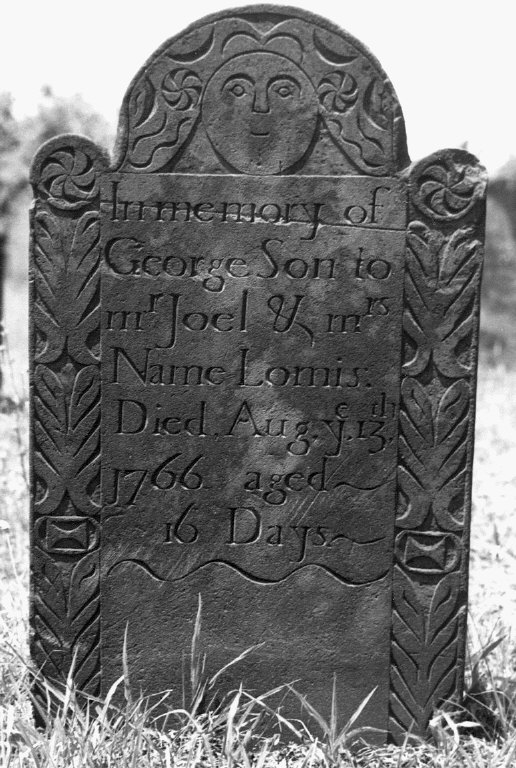 In memory of
George Son to
mr Joel & mrs
Name Lomis:
Died, Aug, ye. 13th,
1766 aged
16 Days